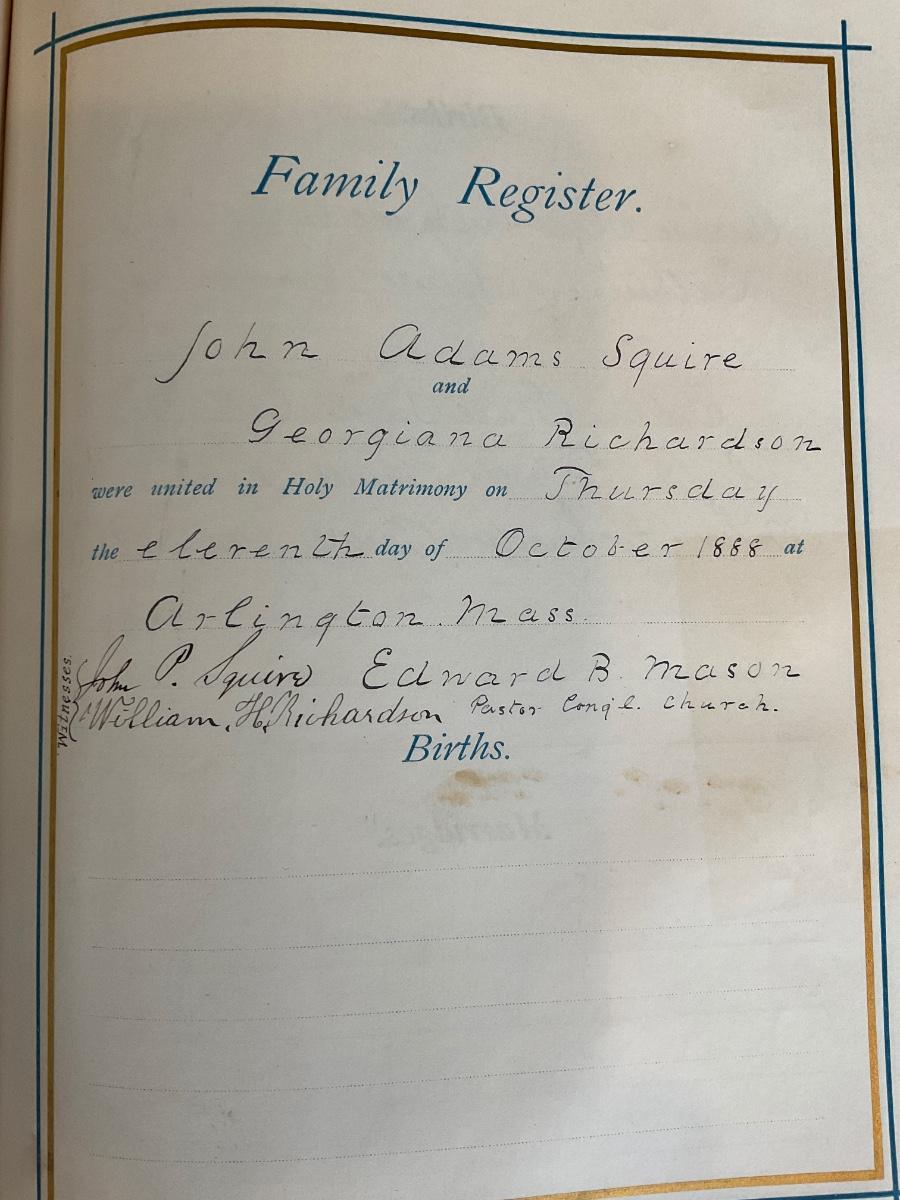 Family Register.
John Adams Squire
and
Georgiana Richardson
were united in Holy Matrimony on Thursday
the eleventh day of October 1888 at
Arlington. Mass.
Witnesses.
John P. Squire Edward B. Mason
William H. Richardson Pastor Cong'l. Church.
Births.